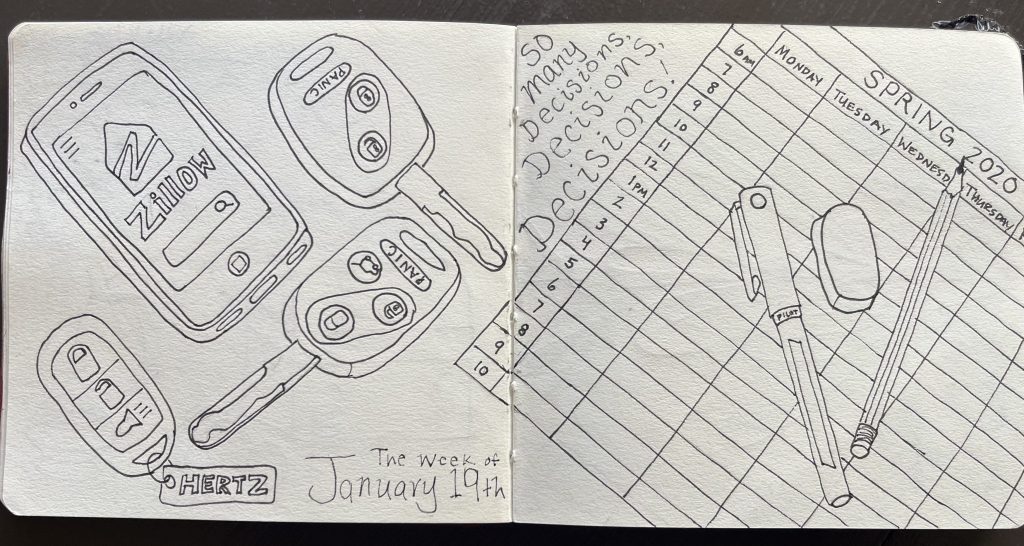 Zillow
PANIC
PANIC
HERTZ
The week of
January 19th
So
many
Decisions,
Decisions,
Decisions!
SPRING 2020
MONDAY
TUESDAY
WEDNESD
THURSDAY
6AM
7
8
9
10
11
12
1PM
2
3
4
5
6
7
8
9
10
PILOT